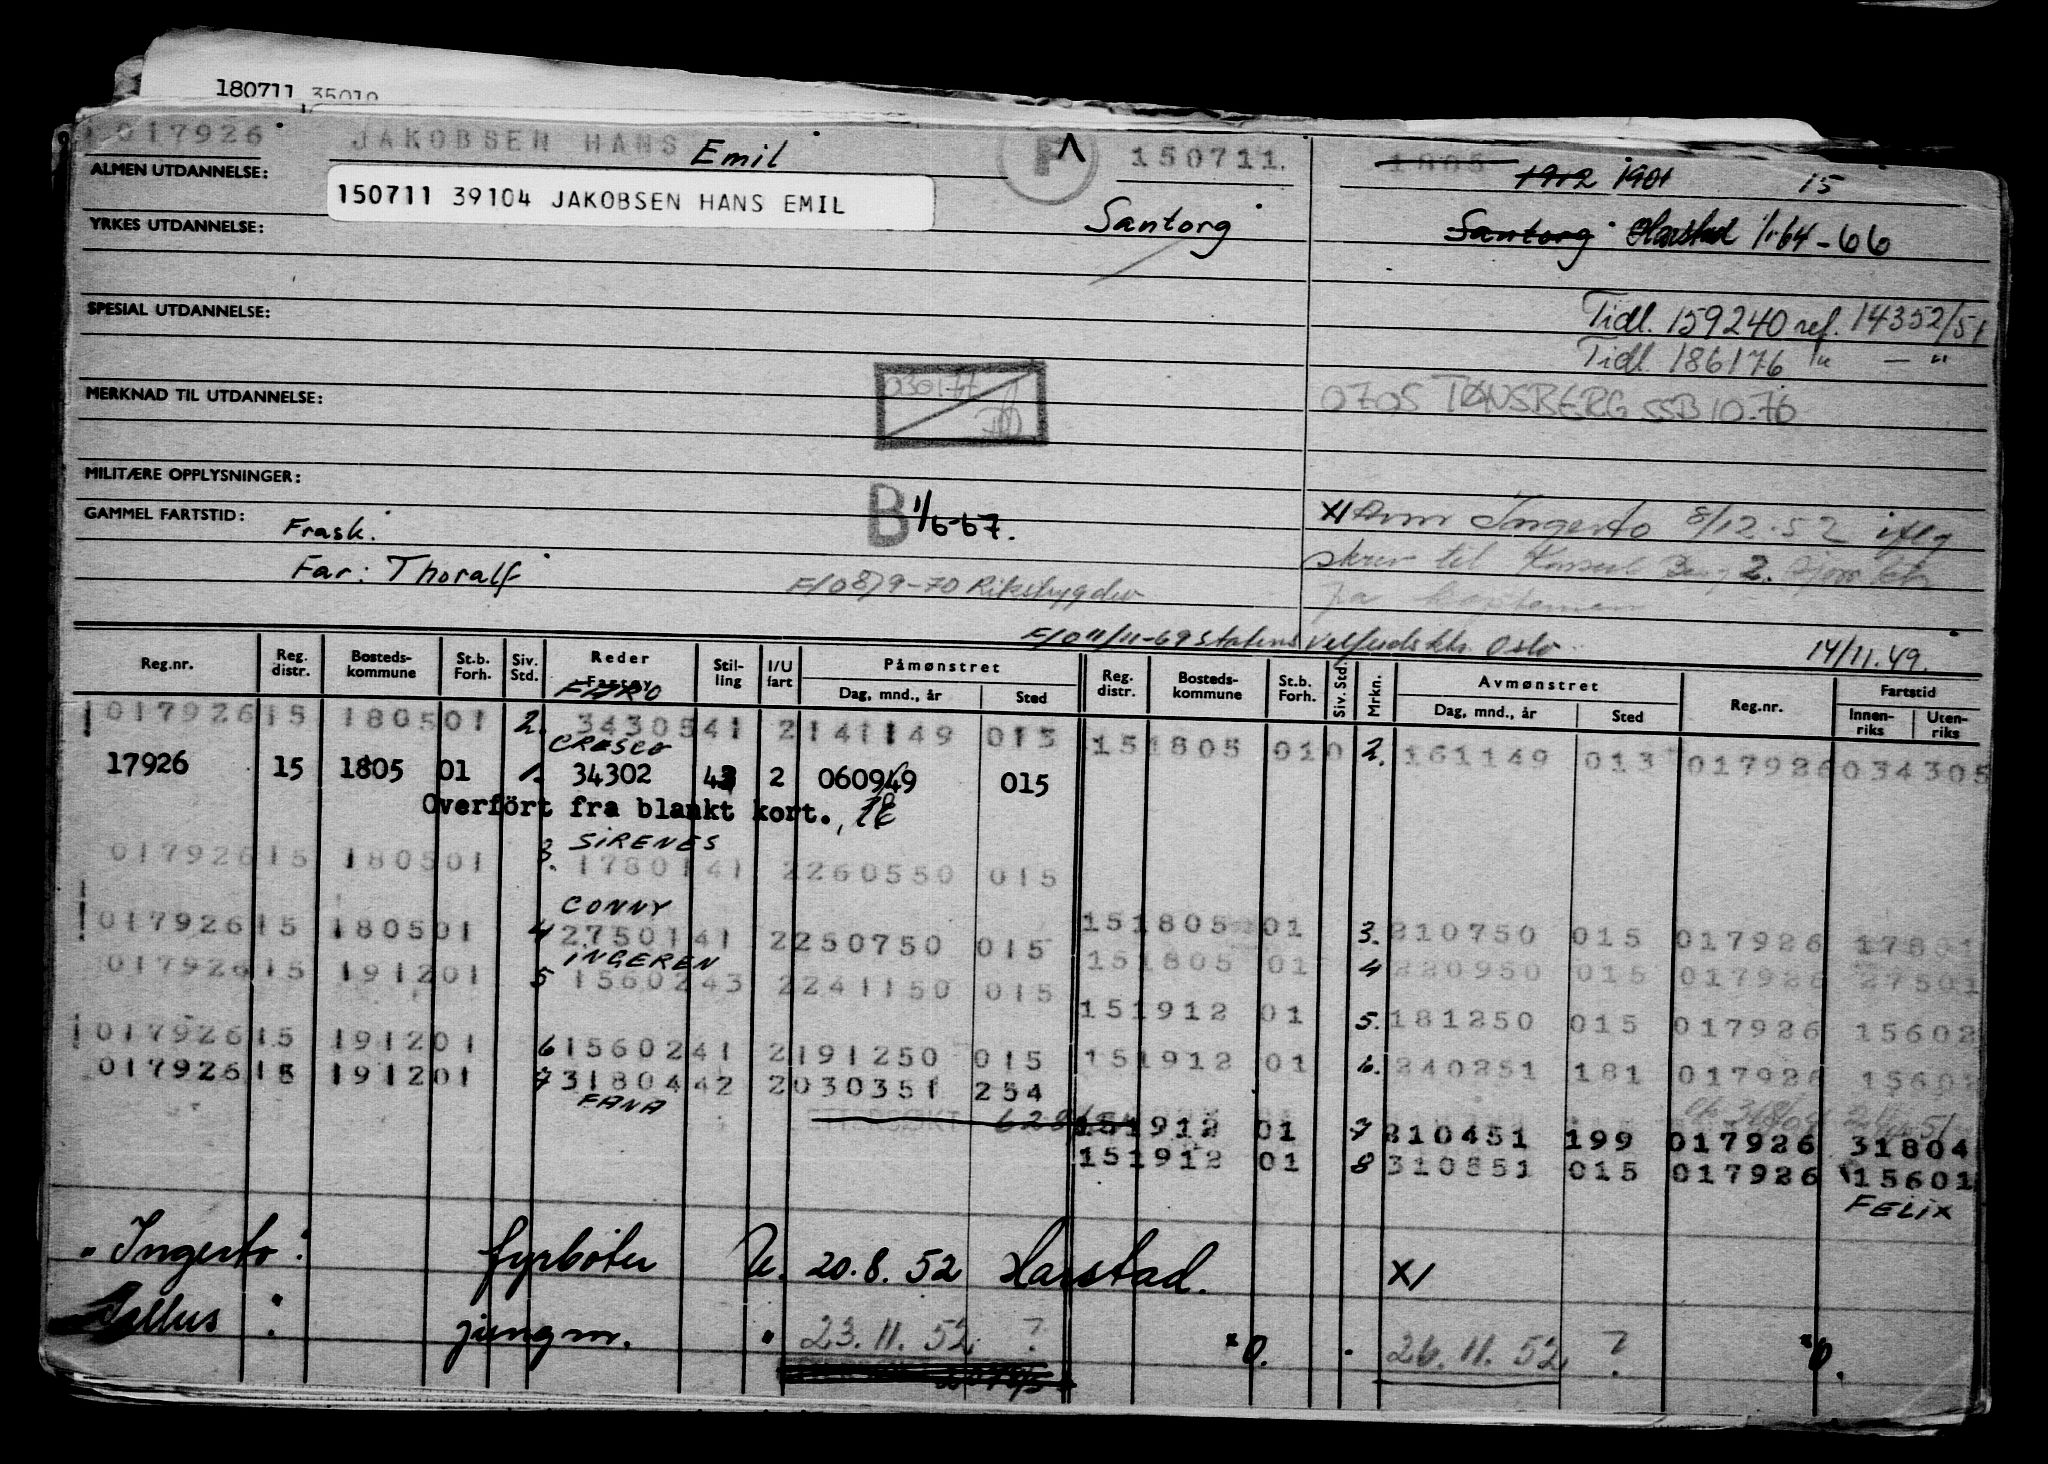 180711 35010
017926 JAKOBSEN HANS Emil F 150711. 1805 1912 1901 15
ALMEN UTDANNELSE:
150711 39104 JAKOBSEN HANS EMIL
YRKES UTDANNELSE: Santorg Santorg Harstad 1/1 64-66
SPESIAL UTDANNELSE: Tidl. 159240 ref. 14352/51
Tidl. 186176 " — "
030177
MERKNAD TIL UTDANNELSE: 0705 TØNSBERG SSB 10.76
MILITÆRE OPPLYSNINGER:
GAMMEL FARTSTID: Frask. B 1/6-67. XI Avm Ingerto 8/12-52 iflg
skriv til Konsul
Far: Thoralf
E/O 8/9-70 Riksbygden
fra kapteinen
E/O 11/11-69 Statens Velferdsktr. Oslo 14/11.49.
Reg.nr. Reg. distr. Bosteds-kommune St.b. Forh. Siv. Std. Reder Fartøy Stil-ling I/U fart Påmønstret Dag, mnd., år Sted Reg. distr. Bosteds-kommune St.b. Forh. Siv. Std. Mrkn. Avmønstret Dag, mnd., år Sted Reg.nr. Fartstid Innen-riks Uten-riks
FARO
017926 15 1805 01 2. 34305 41 2 141149 013 15 1805 01 0 2. 161149 013 017926 034305
CRESCO
17926 15 1805 01 1. 34302 43 2 060949 015
Overført fra blankt kort.
SIRENES
017926 15 1805 01 3. 17801 41 2 260550 015
CONNY
15 1805 01 3. 210750 015 017926 17801
017926 15 1805 01 4 27501 41 2 250750 015
INGEREN
15 1805 01 4 220950 015 017926 27501
017926 15 1912 01 5 15602 43 2 241150 015
15 1912 01 5. 181250 015 017926 15602
017926 15 1912 01 6 15602 41 2 191250 015 15 1912 01 6. 240251 181 017926 15602
017926 15 1912 01 7 31804 42 2 030351 254
FANA
15 1912 01 7 210451 199 017926 31804
15 1912 01 8 310551 015 017926 15601
FELIX
"Ingerto" fyrbøter U. 20.8.52 Harstad. XI
jungm. " 23.11.52 ? "0. 26.11.52 ? "0.